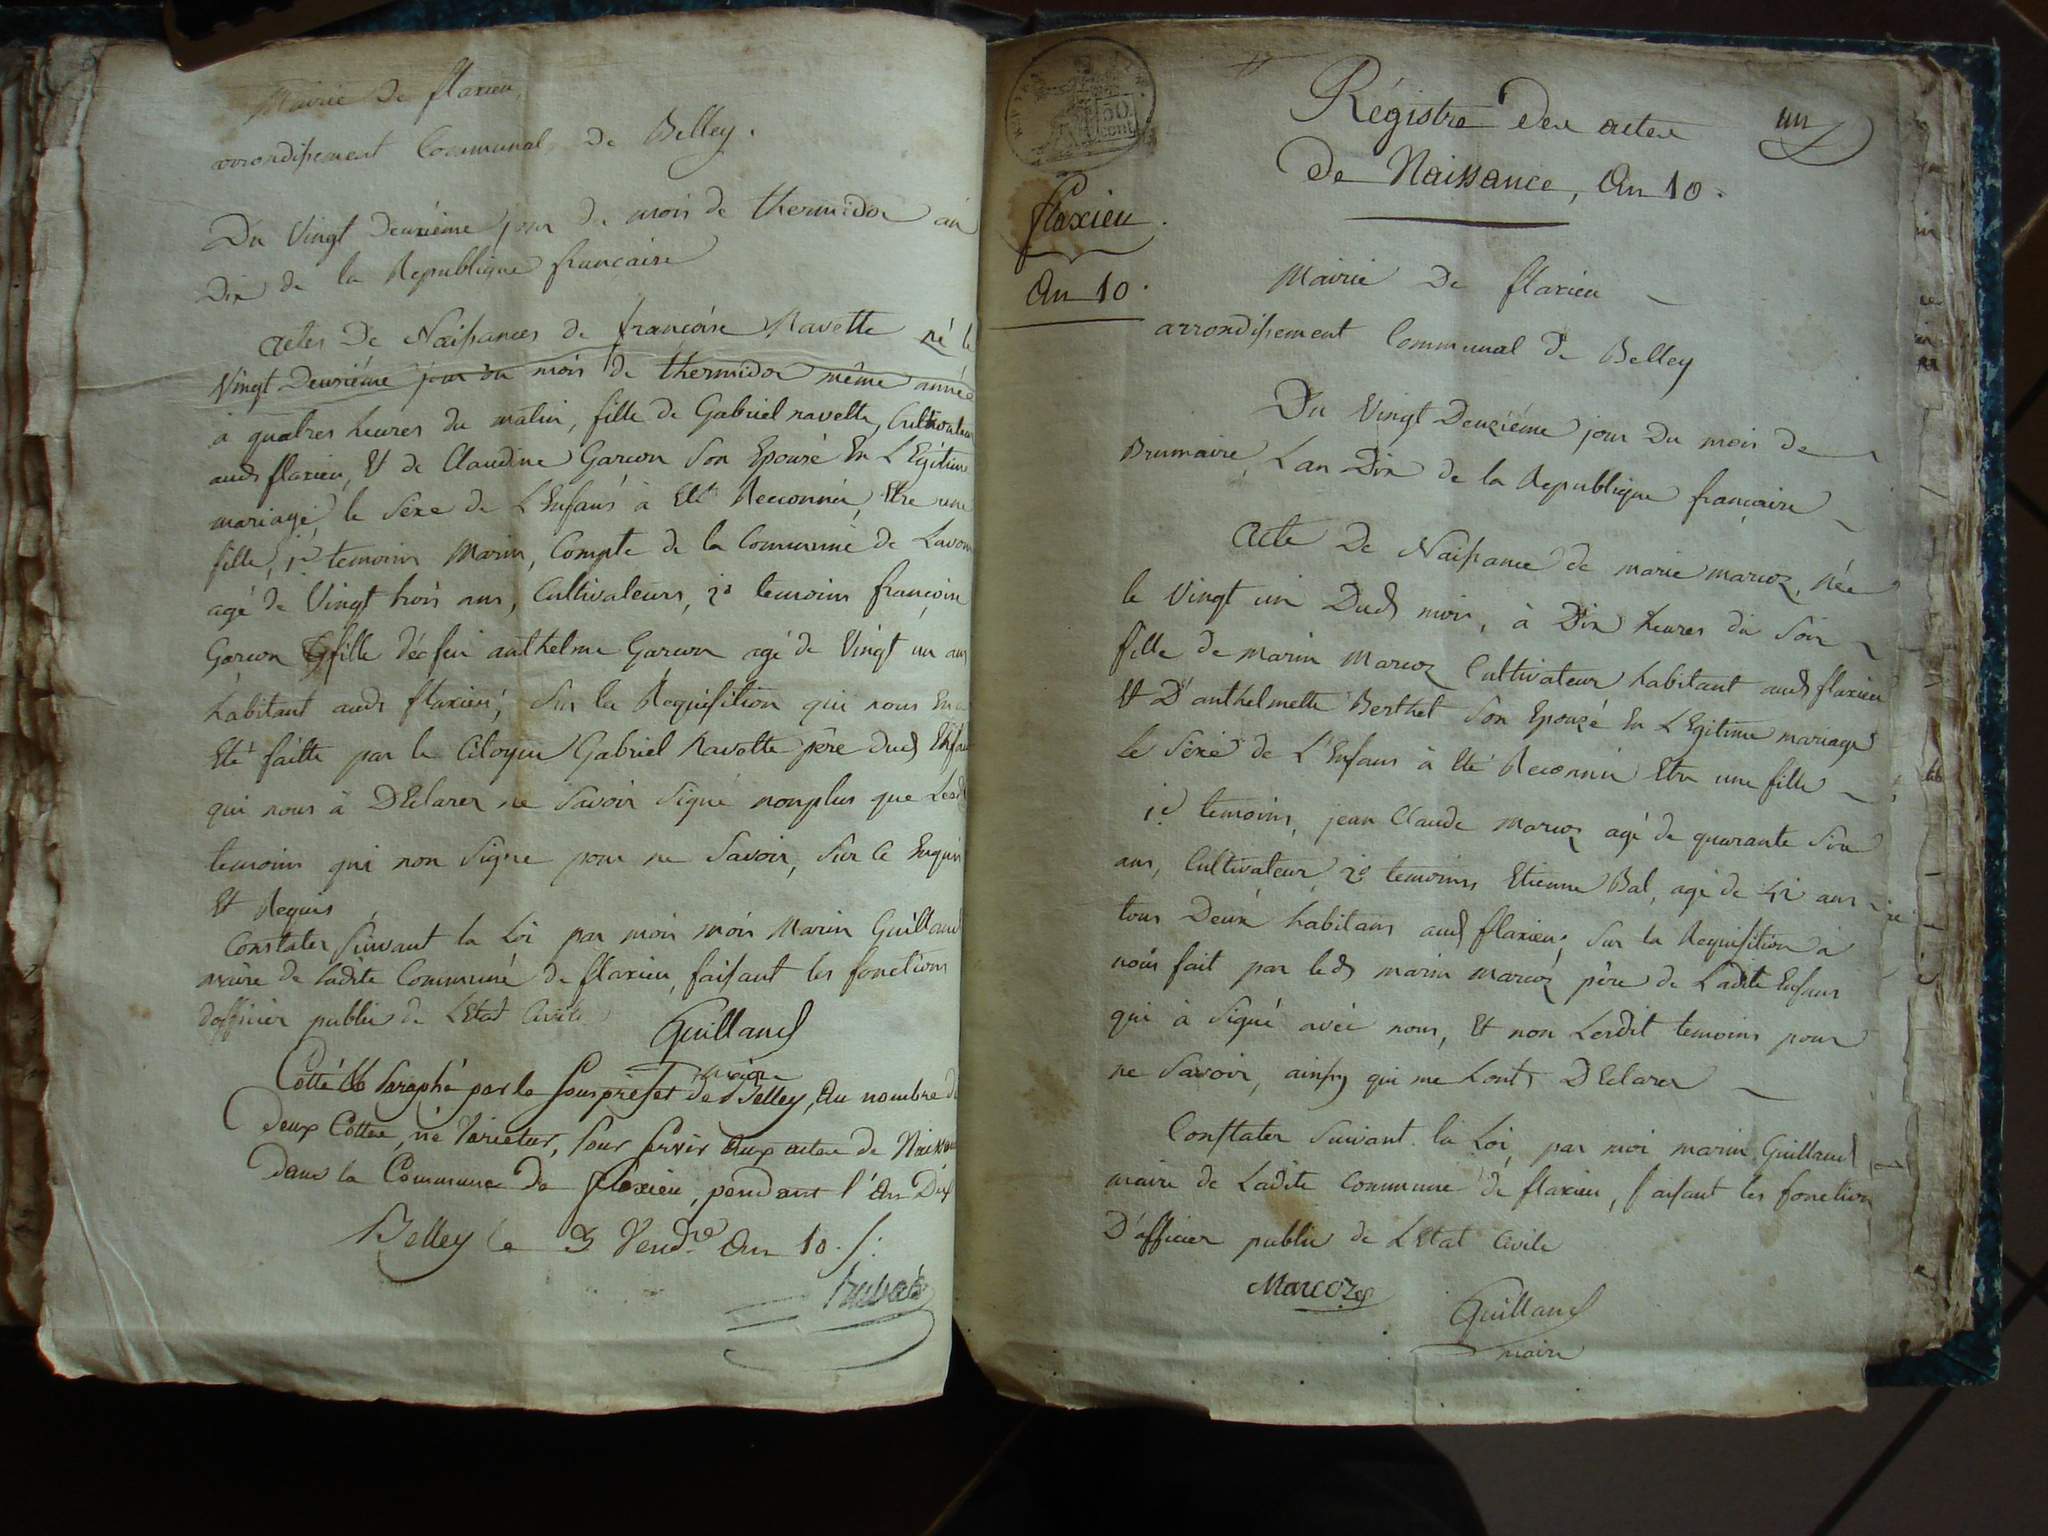 Mairie De flaxieu
arrondissement Communal De Belley.
Du Vingt Deuxiéme jour du mois de thermidor an
Dix de la Republique francaise
actes De Naissances de francoise Ravette né le
Vingt Deuxiéme jour du mois de thermidor même année
à quatres heures du matin, fille de Gabriel ravette, Cultivateur
aud flaxieu, Et de Claudine Garcon Son Epousé En L'Egitime
mariage, le Sexe de L'Enfans à Eté Reconnu, Etre une
fille, 1er temoins Marin, Compte de la Commune de Lavou
agé de Vingt trois ans, Cultivateurs, 2d temoins francoise
Garcon fille déefeu anthelme Garcon agé de Vingt un ans
habitant aud flaxieu, Sur la Requisition qui nous En a
Eté faitte par le Citoyen Gabriel Ravette père dud Enfans
qui nous à DEclarer ne Savoir Signé nonplus que Lesd
temoins qui non Signe pour ne Savoir, Sur ce Enquis
Et Requis
Constater Suivant la Loi par moi moi Marin Guilland
maire de Ladite Communé de flaxieu, faisant les fonctions
dofficier public de LEtat Civile
Guilland
maire
Cotté & Paraphé par le Souspréfet de Belley, Au nombre de
deux Cottes, né Varietur, pour Servir Aux actes de Naissance
Dans la Commune De flaxieu, pendant l'An Dix
Belley le 5 Vend.re An 10 /.
50
cent.
Régistre Des actes
un
De Naissance, An 10.
flaxieu.
An 10.
Mairie De flaxieu
arrondissement Communal De Belley
Du Vingt Deuziéme jour Du mois de
Brumaire, Lan Dix de la Republique francaise
Acte De Naissance de marie marcoz, née
le Vingt un Dud mois, à Dix heures du Soir
fille de marin Marcoz Cultivateur habitant aud flaxieu
Et D'anthelmette Berthet Son Epouzé En LEgitime mariage
le Sexe de L'Enfans à Eté Reconnu Etre une fille
1er temoins, jean Claude marcoz agé de quarante Six
ans, Cultivateur, 2d temoins Etienne Bal, agé de 42 ans
tous Deux habitans aud flaxieu; Sur la Requisition à
nous fait par led marin marcoz père de Ladite Enfans
qui à Signé avec nous, Et non Lesdit temoins pour
ne Savoir, ainsy qui me Lont DEclarer
Constater Suivant la Loi, par moi marin Guilland
maire de Ladite Commune de flaxieu, faisant les fonction
D'officier public de LEtat Civile
Marcoz
Guilland
maire